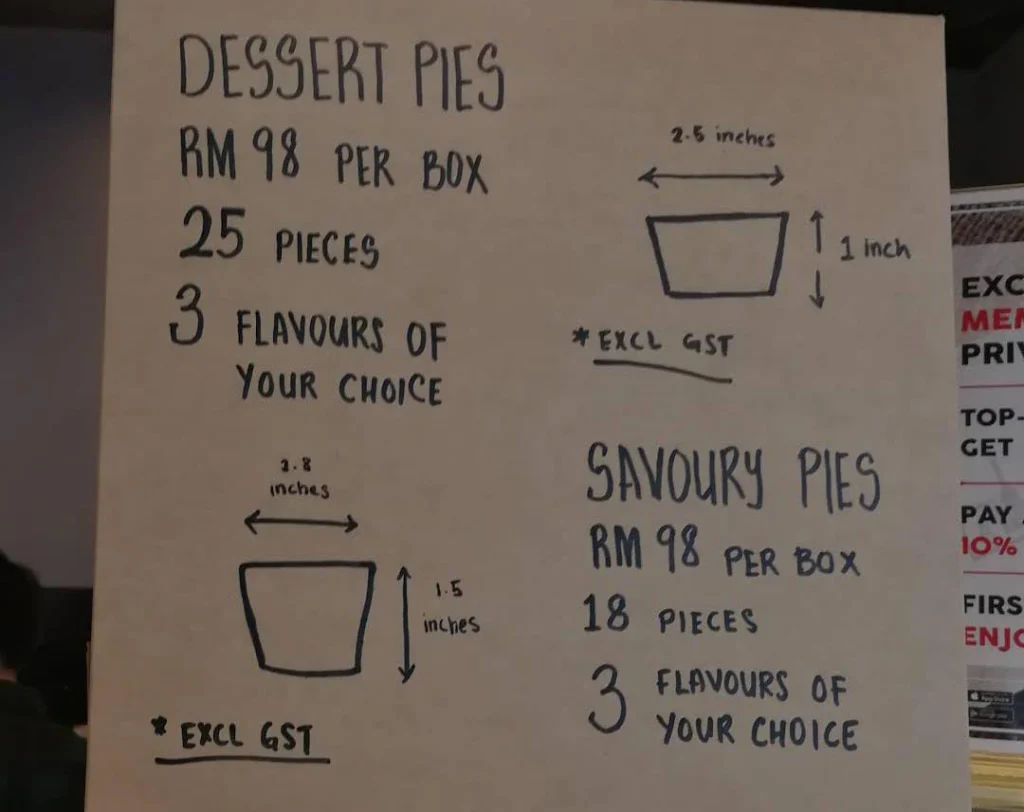 DESSERT PIES
RM 98 PER BOX
25 PIECES
3 FLAVOURS OF
YOUR CHOICE
2.5 inches
1 inch
* EXCL GST
2.8
inches
1.5
inches
* EXCL GST
SAVOURY PIES
RM 98 PER BOX
18 PIECES
3 FLAVOURS OF
YOUR CHOICE
TOP-
GET
PAY
10%